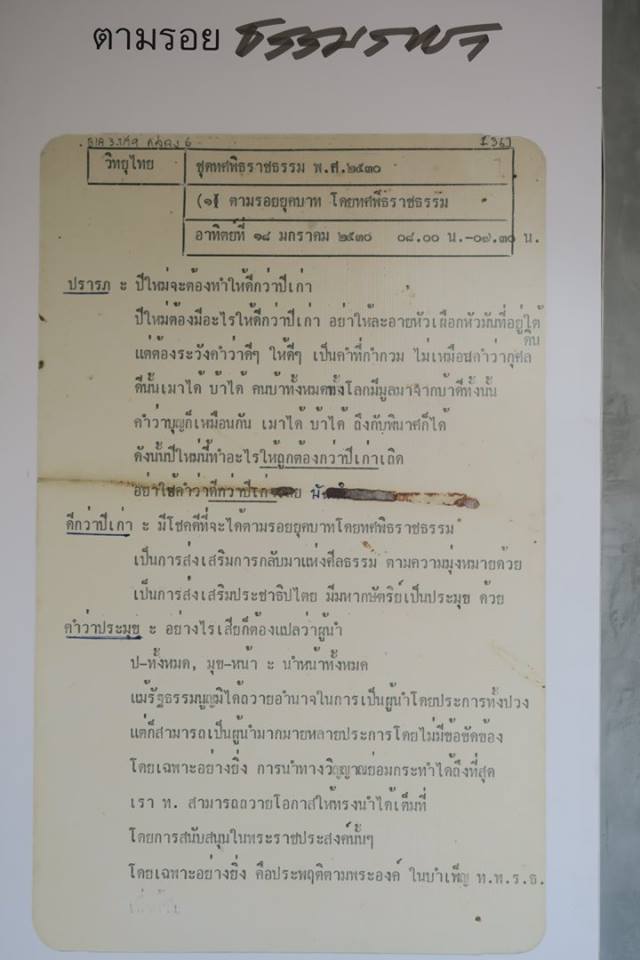 ตามรอย ธรรมราชา
วิทยุไทย
ชุดทศพิธราชธรรม พ.ศ.๒๕๓๐
(๑) ตามรอยยุคบาท โดยทศพิธราชธรรม
อาทิตย์ที่ ๑๘ มกราคม ๒๕๓๐ ๐๘.๐๐ น.-๐๗.๓๐ น.
ปรารภ ะ ปีใหม่จะต้องทำให้ดีกว่าปีเก่า
ปีใหม่ต้องมีอะไรให้ดีกว่าปีเก่า อย่าให้ละอายหัวเผือกหัวมันที่อยู่ใต้ดิน
แต่ต้องระวังคำว่าดีๆ ให้ดีๆ เป็นคำที่กำกวม ไม่เหมือนคำว่ากุศล
ดีนั้นเมาได้ บ้าได้ คนบ้าทั้งหมดทั้งโลกมีมูลมาจากบ้าดีทั้งนั้น
คำว่าบุญก็เหมือนกัน เมาได้ บ้าได้ ถึงกับพินาศก็ได้
ดังนั้นปีใหม่นี้ทำอะไรให้ถูกต้องกว่าปีเก่าเถิด
อย่าใช้คำว่าดีกว่าปีเก่า
ดีกว่าปีเก่า ะ มีโชคดีที่จะได้ตามรอยยุคบาทโดยทศพิธราชธรรม
เป็นการส่งเสริมการกลับมาแห่งศีลธรรม ตามความมุ่งหมายด้วย
เป็นการส่งเสริมประชาธิปไตย มีมหากษัตริย์เป็นประมุข ด้วย
คำว่าประมุข ะ อย่างไรเสียก็ต้องแปลว่าผู้นำ
ป-ทั้งหมด, มุข-หน้า ะ นำหน้าทั้งหมด
แม้รัฐธรรมนูญมิได้ถวายอำนาจในการเป็นผู้นำโดยประการทั้งปวง
แต่ก็สามารถเป็นผู้นำมากมายหลายประการโดยไม่มีข้อขัดข้อง
โดยเฉพาะอย่างยิ่ง การนำทางวิญญาณย่อมกระทำได้ถึงที่สุด
เรา ท. สามารถถวายโอกาสให้ทรงนำได้เต็มที่
โดยการสนับสนุนในพระราชประสงค์นั้นๆ
โดยเฉพาะอย่างยิ่ง คือประพฤติตามพระองค์ ในบำเพ็ญ ท.พ.ร.ธ.